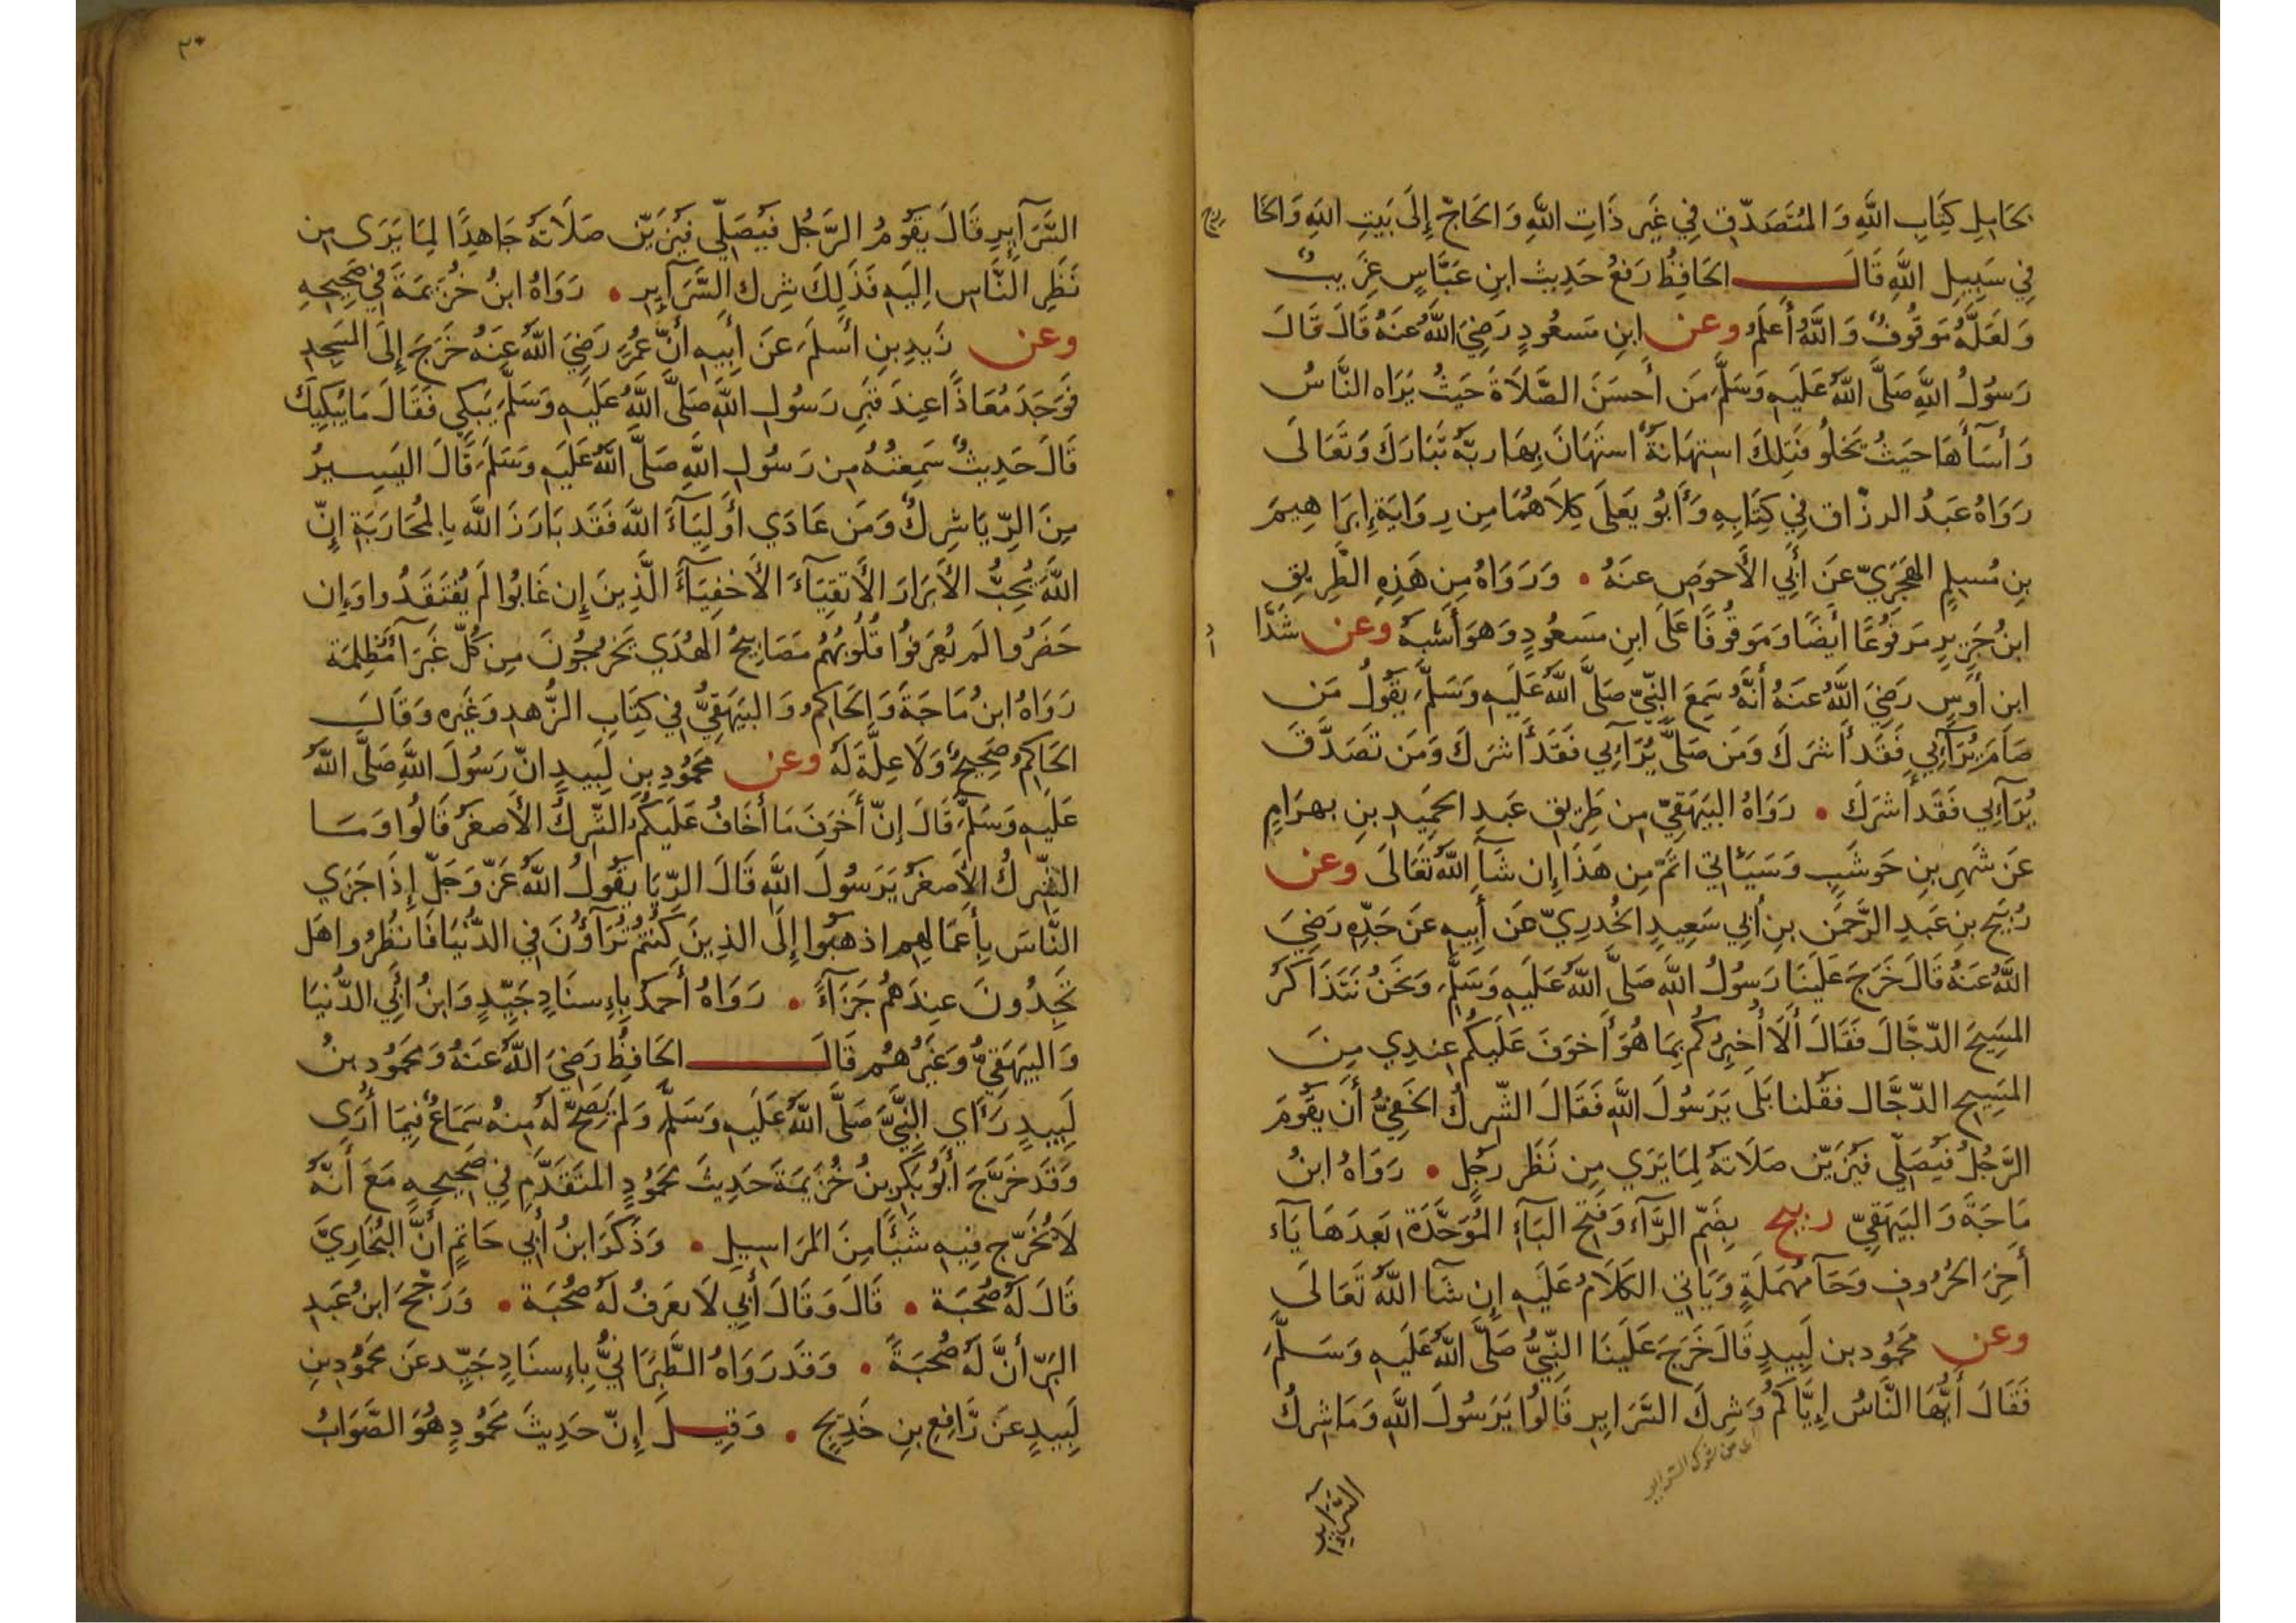 لحَامِلِ كِتَابِ اللَّهِ وَالمُتَصَدِّقِ فِي غَيرِ ذَاتِ اللَّهِ وَالحَاجّ إِلَى بَيتِ اللَّهِ وَالخَا
رج
فِي سَبِيلِ اللَّهِ قَالَ الحَافِظُ رَفعُ حَدِيثِ ابنِ عَبَّاسٍ غَرِيبٌ
وَلَعَلَّهُ مَوقُوفٌ وَاللَّهُ أَعلَمُ وعن ابنِ مَسعُودٍ رَضِيَ اللَّهُ عَنهُ قَالَ قَالَ
رَسُولُ اللَّهِ صَلَّى اللَّهُ عَلَيهِ وَسَلَّمَ مَن أَحسَنَ الصَّلَاةَ حَيثُ يَرَاه النَّاسُ
وَأَسَأَهَا حَيثُ يَخلُو فَتِلكَ استِهَانَةٌ استَهَانَ بِهَا ربَّهُ تَبَارَكَ وَتَعَالَى
رَوَاهُ عَبدُ الرزَّاق فِي كِتَابِهِ وَأَبُو يَعلَى كِلَاهُمَا مِن رِوَايَةِ إِبرَاهِيمَ
بنِ مُسلِمٍ الهَجَرِيّ عَن أَبِي الأَحوَصِ عَنهُ • وَرَوَاهُ مِن هَذِهِ الطَّرِيقِ
ابنُ جَرِيرٍ مَرفُوعًا أَيضًا وَمَوقُوفًا عَلَى ابنِ مَسعُودٍ وَهوَ أَشبَهُ وعن شَدَّا
د
ابنِ أَوسٍ رَضِيَ اللَّهُ عَنهُ أَنَّهُ سَمِعَ النَّبِيَّ صَلَّى اللَّهُ عَلَيهِ وَسَلَّمَ يَقُولُ مَن
صَامَ يُرَآئِي فَقَد أَشرَكَ وَمَن صَلَّى يُرَآئِي فَقَد أَشرَكَ وَمَن تَصَدَّقَ
يُرَآئِي فَقَد أَشرَكَ • رَوَاهُ البَيهَقِيّ مِن طَرِيقِ عَبدِ الحَمِيدِ بنِ بهرَامٍ
عَن شَهرِ بنِ حَوشَبٍ وَسَيَأتِي اتَمّ مِن هَذَا إِن شَآ اللَّهُ تَعَالَى وعن
رُبَيحِ بنِ عَبدِ الرَّحمَنِ بنِ أَبِي سَعِيدٍ الخُدرِيّ عَن أَبِيهِ عَن جَدِّهِ رَضِيَ
اللَّهُ عَنهُ قَالَ خَرَجَ عَلَينَا رَسُولُ اللَّهِ صَلَّى اللَّهُ عَلَيهِ وَسَلَّمَ وَنَحنُ نَتَذَاكَرُ
المَسِيحَ الدّجَّالَ فَقَالَ أَلَا أُخبِرُكُم بِمَا هُوَ أَخوَفُ عَلَيكُم عِندِي مِنَ
المَسِيحِ الدّجَّال فقُلنا بَلَى يَرَسُولَ اللَّهِ فَقَالَ الشِّركُ الخَفِيُّ أَن يَقُومَ
الرَّجُلُ فَيُصَلِّي فَيُزَيِّن صَلَاتَهُ لِمَا يَرَي مِن نَظَرِ رَجُلٍ • رَوَاهُ ابنُ
مَاجَةَ وَالبَيهَقِيّ ربيح بِضَمِّ الرَّآءِ وَفَتحِ البَآءِ المُوَحَّدَةِ بَعدَهَا يَآء
أَخِرَ الحُرُوفِ وَحَآ مُهمَلَةٍ وَيَاتِي الكَلَامُ عَلَيهِ إِن شَآ اللَّهُ تَعَالَى
وعن مَحمُود بن لَبِيدٍ قَالَ خَرَجَ عَلَينَا النَّبِيُّ صَلَّى اللَّهُ عَلَيهِ وَسَلَّمَ
فَقَالَ أَيُّهَا النَّاسُ إِيَّاكُم وَشِركَ السَّرَايِرِ قَالُوا يَرَسُولَ اللَّهِ وَمَا شِركُ
اى من شرك السراير
السَّرَآيِرِ
٢٠
السَّرَآيِرِ قَالَ يَقُومُ الرَّجُلُ فَيُصَلِّي فَيُزَيِّن صَلَاتَهُ جَاهِدًا لِمَا يَرَى مِن
نَظَرِ النَّاسِ اِلَيهِ فَذَلِكَ شِركُ السَّرَآيِرِ • رَوَاهُ ابنُ خُزَيمَةَ فِي صَحِيحِهِ
وعن زَيدِ بنِ أَسلَمَ عَن أَبِيهِ أَنَّ عُمَرَ رَضِيَ اللَّهُ عَنهُ خَرَجَ إِلَى المَسجِدِ
فَوَجَدَ مُعَاذًا عِندَ قَبرِ رَسُولِ اللَّهِ صَلَّى اللَّهُ عَلَيهِ وَسَلَّمَ يَبكِي فَقَالَ مَا يُبكِيكَ
قَالَ حَدِيثٌ سَمِعتُهُ مِن رَسُولِ اللَّهِ صَلَّى اللَّهُ عَلَيهِ وَسَلَّمَ قَالَ اليَسِيرُ
مِنَ الرِّيَا شِركٌ وَمَن عَادَي أَولِيَآءَ اللَّهِ فَقَد بَارَزَ اللَّه بِالمُحَارَبَةِ إِنّ
اللَّهَ يُحِبُّ الأَبرَارَ الأَتقِيَآءَ الأَخفِيَآءَ الَّذِينَ إِن غَابُوا لَم يُفتَقَدُوا وَإِن
حَضَرُوا لَم يُعرَفُوا قُلُوبُهُم مَصَابِيحُ الهُدَي يَخرُجُونَ مِن كُلِّ غَبرَآ مُظلِمَة
رَوَاهُ ابنُ مَاجَةَ وَالحَاكِمُ وَالبَيهَقِيُّ فِي كِتَابِ الزُّهدِ وَغَيرِه وَقَالَ
الحَاكِمُ صَحِيحٌ وَلَا عِلَّةَ لَهُ وعن مَحمُودِ بنِ لَبِيدٍ انّ رَسُولَ اللَّهِ صَلَّى اللَّهُ
عَلَيهِ وَسَلَّمَ قَالَ إِنّ أَخوَفَ مَا أَخَافُ عَلَيكُمُ الشِّركُ الأَصغَرُ قَالُوا وَمَا
الشِّركُ الأَصغَرُ يَرَسُولَ اللَّهِ قَالَ الرِّيَا يَقُولُ اللَّهُ عَزَّ وَجَلَّ إِذَا جَزَي
النَّاسَ بِأَعمَالِهِم اذهَبُوا إِلَى الذِينَ كُنتُم تُرَآؤُنَ فِي الدُّنيَا فَانظُرُوا هَل
تَجِدُونَ عِندَهُم جَزَآءً • رَوَاهُ أَحمَدُ بِإِسنَادٍ جَيِّدٍ وَابنُ أَبِي الدُّنيَا
وَالبَيهَقِيُّ وَغَيرُهُم قَالَ الحَافِظُ رَضِيَ اللَّهُ عَنهُ وَمَحمُود بنُ
لَبِيدٍ رَآي النَّبِيَّ صَلَّى اللَّهُ عَلَيهِ وَسَلَّمَ وَلَم يَصِحّ لَهُ مِنهُ سَمَاعٌ فِيمَا أُرَى
وَقَد خَرَّجَ أَبُو بَكرِ بنُ خُزَيمَةَ حَدِيثَ مَحمُودٍ المتَقَدَّم فِي صَحِيحِهِ مَعَ أَنَّهُ
لَا يُخَرِّج فِيهِ شَيئًا مِنَ المَرَاسِيلِ • وَذَكَرَ ابنُ أَبِي حَاتِمٍ أَنَّ البُخَارِيَّ
قَالَ لَهُ صُحبَة • قَالَ وَقَالَ أَبِي لَا يعرَفُ لَهُ صُحبَة • وَرَجَّحَ ابنُ عَبدِ
البَرّ أَنَّ لَهُ صُحبَةً • وَقَد رَوَاهُ الطَّبَرَانِيُّ بِإِسنَادٍ جَيِّد عَن مَحمُودِ بنِ
لَبِيدٍ عَن رَّافِعِ بنِ خَدِيجٍ • وَقِيلَ إِنّ حَدِيثَ مَحمُودٍ هُوَ الصَّوَابُ